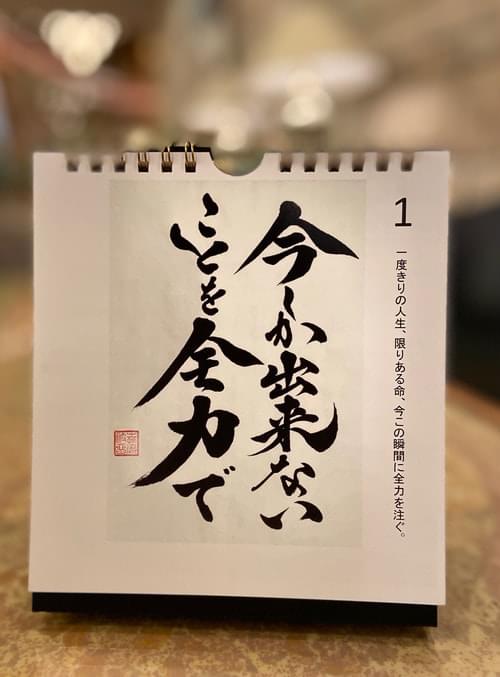 1
一度きりの人生、限りある命、今この瞬間に全力を注ぐ。
今しか出来ない
ことを全力で